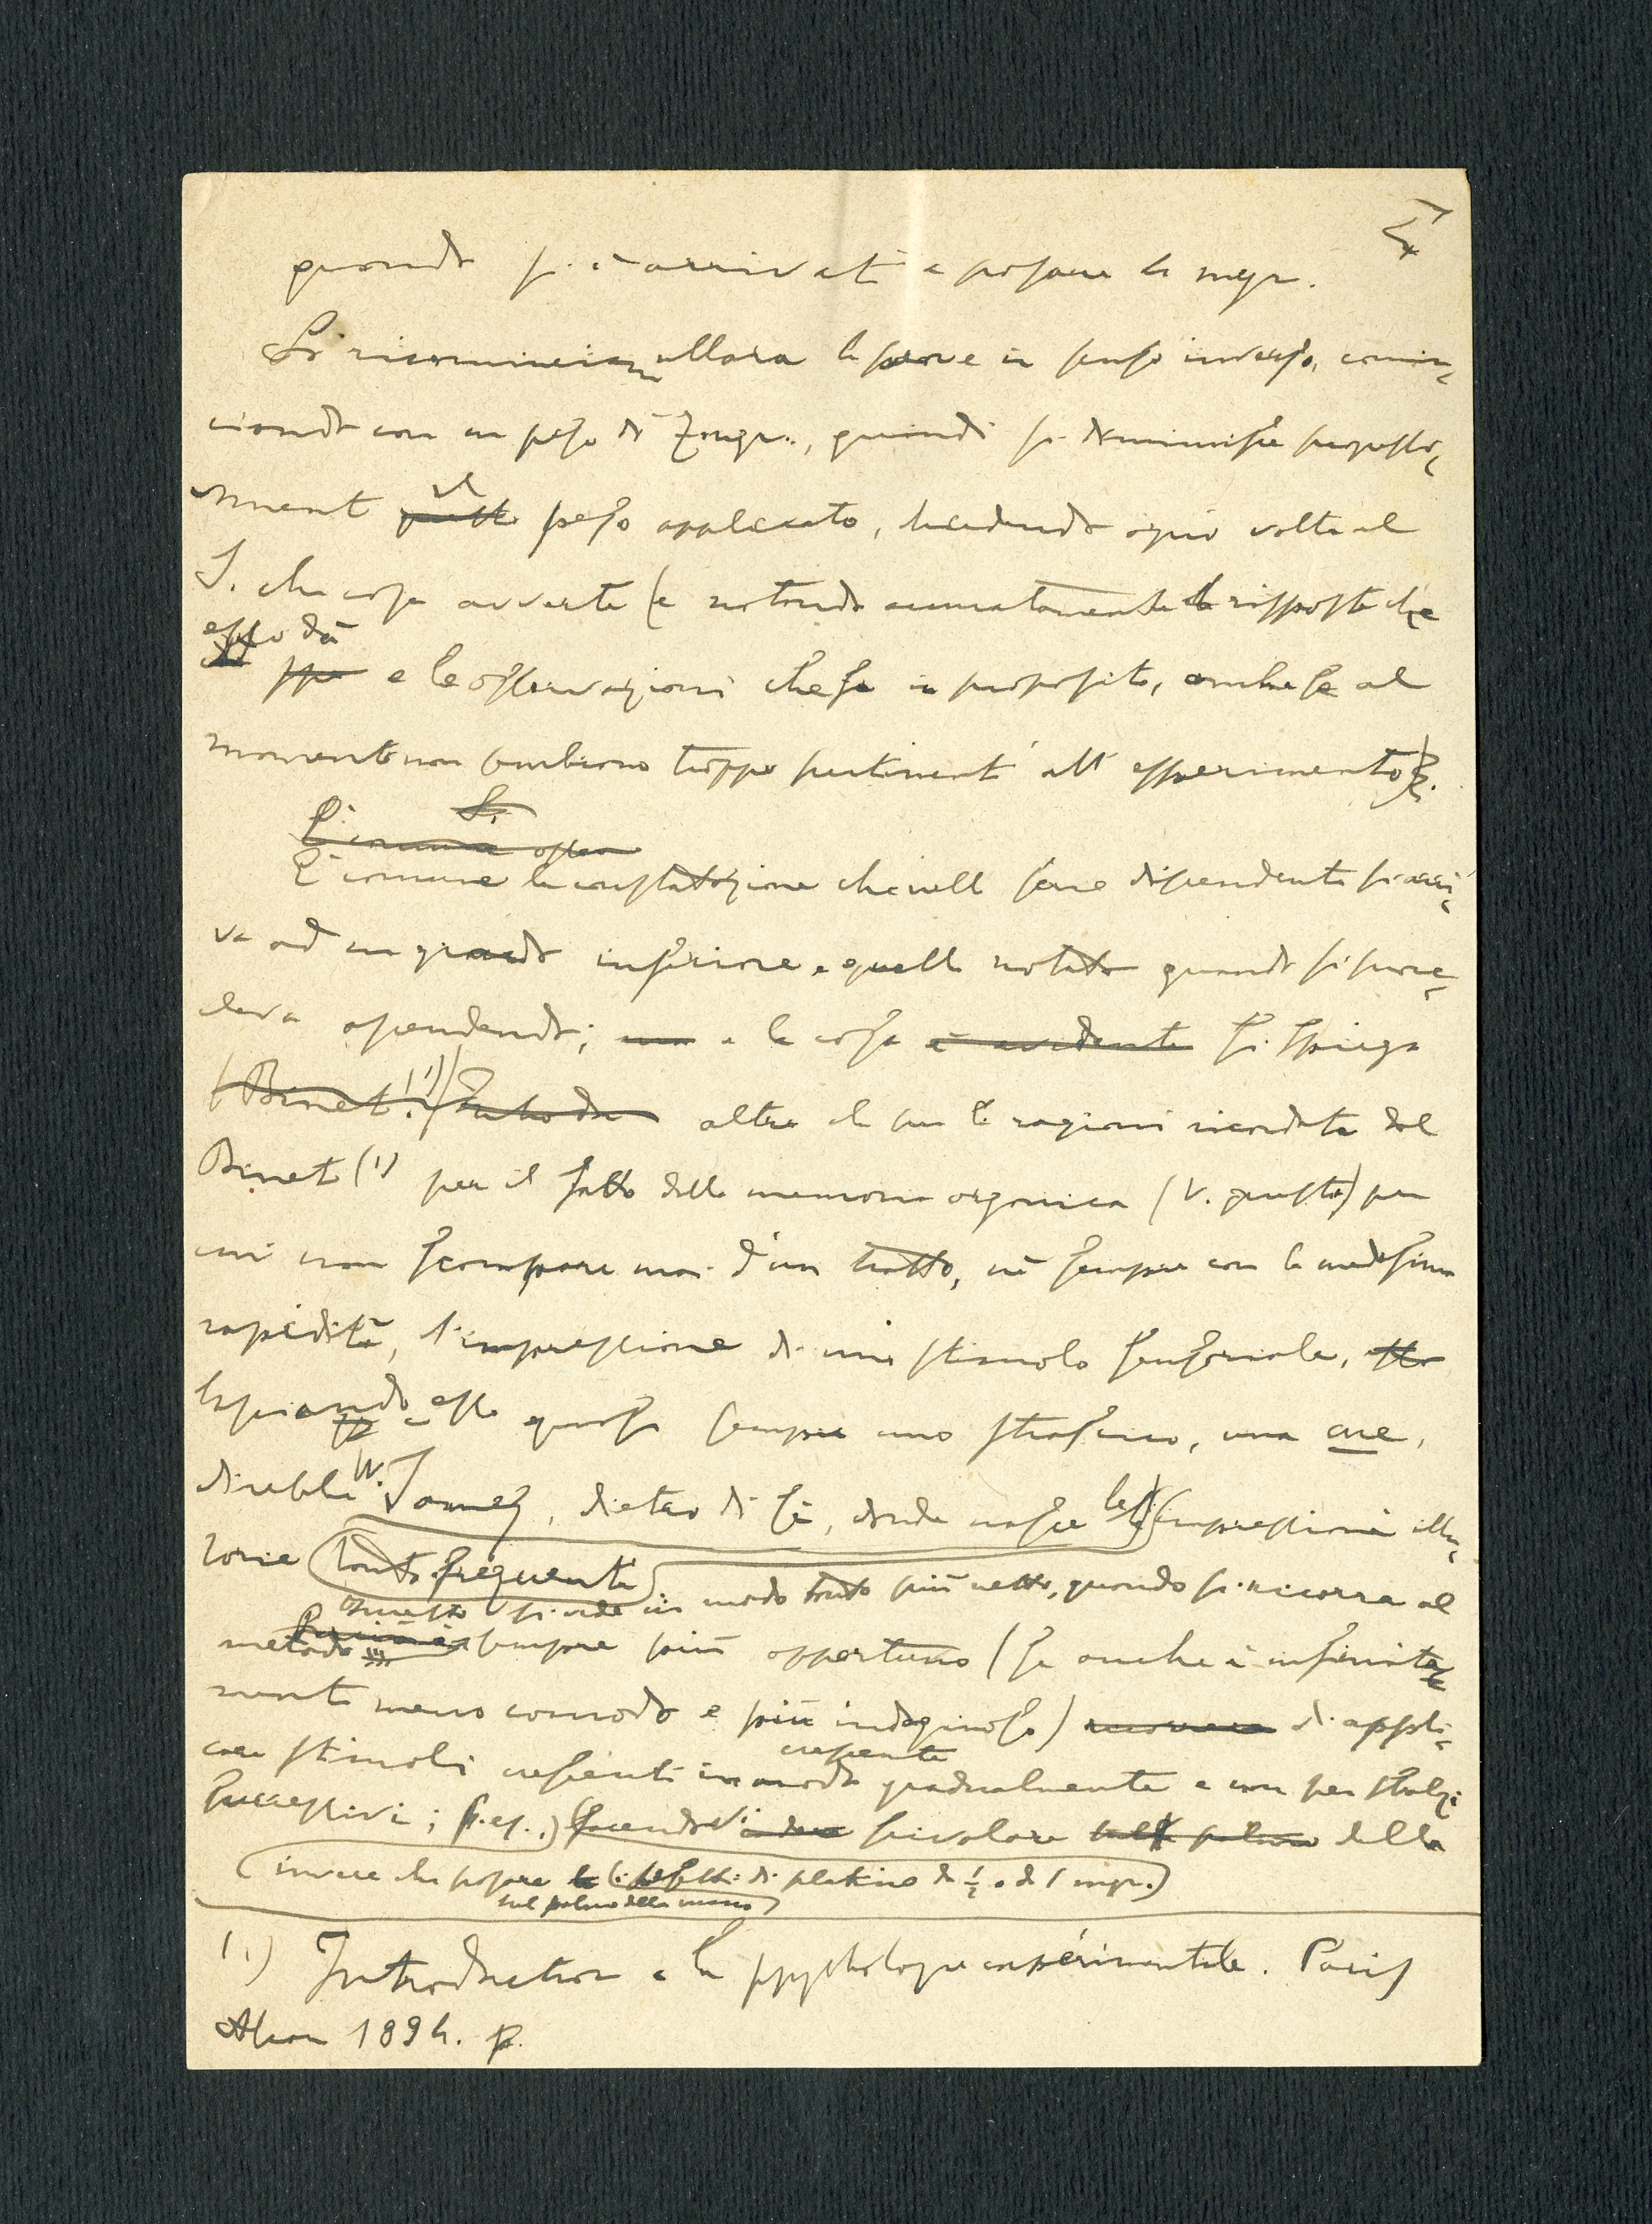 quando si è arrivati a posare la mgr.
Si ricomincian allora le prove in senso inverso, comin-
ciando con un peso di mgr., quindi si diminuisce progressiva-
mente questo il peso applicato, chiedendo ogni volta al
S. che cosa avverte (e notando accuratamente le risposte che
esso dà
e le osservazioni che fa in proposito, anche se al
momento non sembrano troppo pertinenti all' esperimento).
È comune la constatazione che nella serie discendente si arri-
va ad un grado inferiore a quello notato quando si proce-
deva ascendendo; ma e la cosa è evidente si spiega
(Binet (1)) oltre che per le ragioni ricordate dal
Binet (1) per il fatto della memoria organica (V. questa) per
cui non scompare mai d'un tratto, nè sempre con la medesima
rapidità, l'impressione di uno stimolo sensoriale,
lasciando esso quasi sempre uno strascico, una aue,
direbbe W. James, dietro di sè, donde nasce le impressioni illu-
sorie tanto frequenti.
Questo si vede in modo tanto più netto, quando si ricorra al
metodo sempre più opportuno (se anche è infinita-
mente meno comodo e più indaginoso) di appli-
care stimoli crescenti in modo crescente gradualmente e non per sbalzi
successivi; (p. es.,) facendovi scivolare sulla palma della
(invece che posare i pesetti di platino di ½ o di 1 mgr.)
sul palmo della mano
(1.) Introduction a la psychologie expérimentale. Paris
Alcan 1894. p.